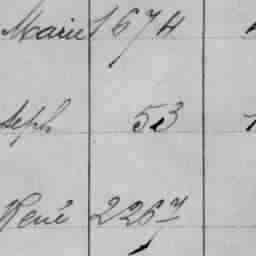 Marie 1674
seph 53
René 2267